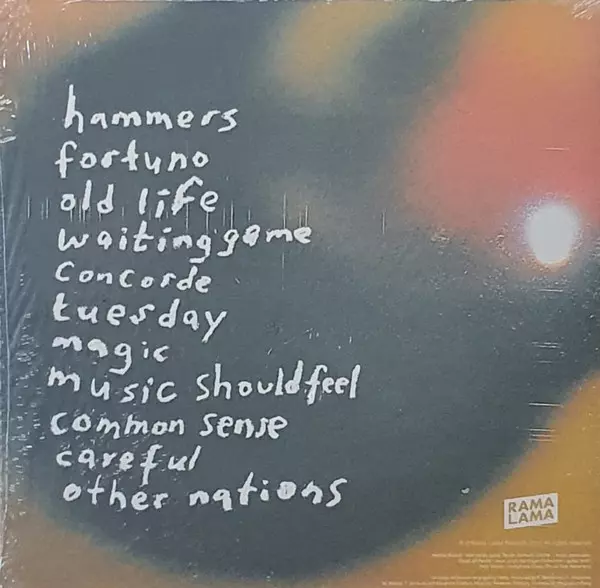 hammers
fortuno
old life
waiting game
concorde
tuesday
magic
music should feel
common sense
careful
other nations
RAMA
LAMA